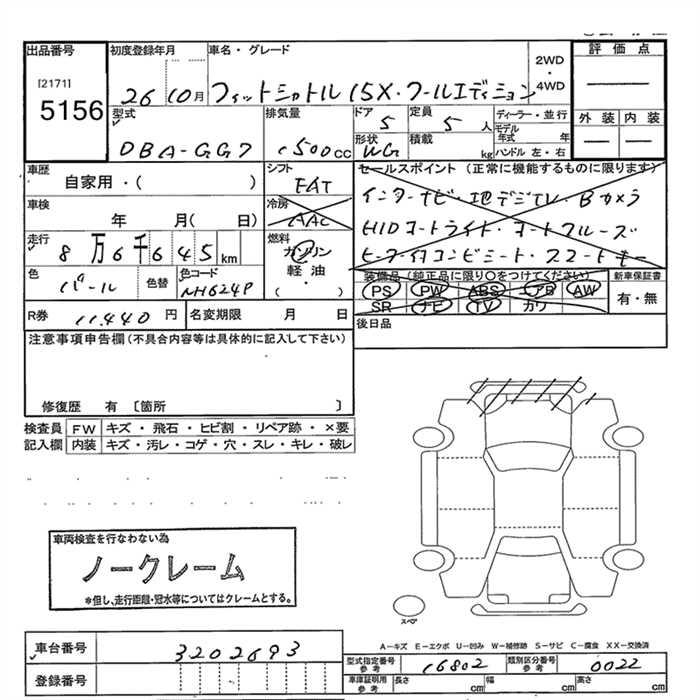 出品番号 初度登録年月 車名・グレード 2WD・4WD 評価点
[2171]
5156
26 10月 フィットシャトル 15X・クールエディション
型式 排気量 ドア 定員 ディーラー・並行 外装 内装
DBA-GG7 1500cc 5 5人 モデル年式 年
形状 積載 ハンドル 左・右
WG kg
車歴 シフト セールスポイント(正常に機能するものに限ります)
自家用・( ) FAT
インターナビ・地デジTV・Bカメラ
車検 冷房
年 月( 日) AAC
HIDオートライト・オートクルーズ
走行 燃料
8万6千645km ガソリン
軽油
( ・ )
色 色替 色コード 装備品(純正品に限り○をつけてください) 新車保証書
パール NH624P
PS PW ABS エアB AW 有・無
SR ナビ TV カワ
R券 11,440円 名変期限 月 日 後日品
注意事項申告欄(不具合内容等は具体的に記入して下さい)
修復歴 有〔箇所 〕
検査員 FW キズ・飛石・ヒビ割・リペア跡・×要
記入欄 内装 キズ・汚レ・コゲ・穴・スレ・キレ・破レ
車両検査を行なわない為
ノークレーム
*但し、走行距離・冠水等についてはクレームとする。
スペア
A-キズ E-エクボ U-凹み W-補修跡 S-サビ C-腐食 XX-交換済
車台番号 3202693
型式指定番号 参考 16802 類別区分番号 参考 0022
登録番号
車庫証明用 参考 長さ cm 幅 cm 高さ cm